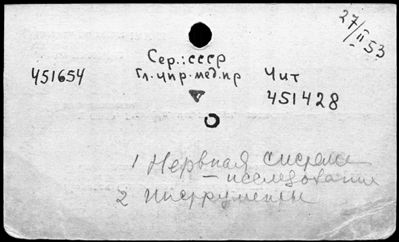 27/II 53
Сер.: СССР
451654 Гл. упр. мед. пр Чит
451428
1 Нервная система
— исследование
2 Инструменты